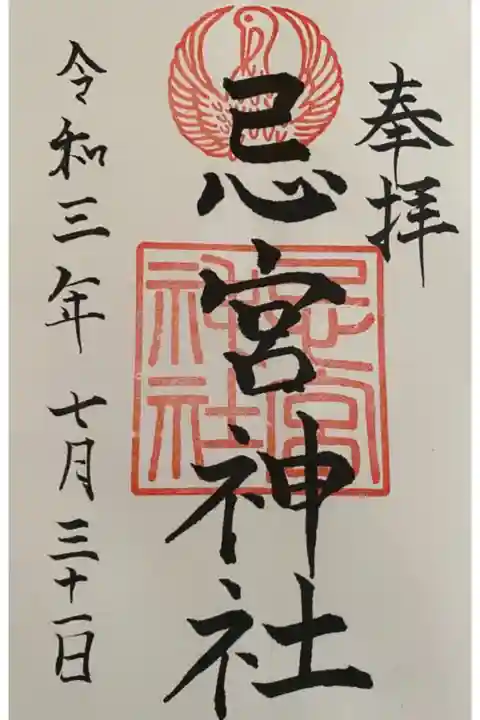 奉拝
忌宮神社
忌宮
神社
令和三年七月三十一日